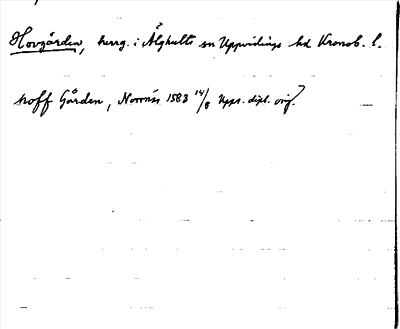 Hovgården, herrg. i Älghults sn Uppvidinge hd Kronob. l.
hoff Gården, Norrnäs 1583 14/8 Upps. dipl. orig.